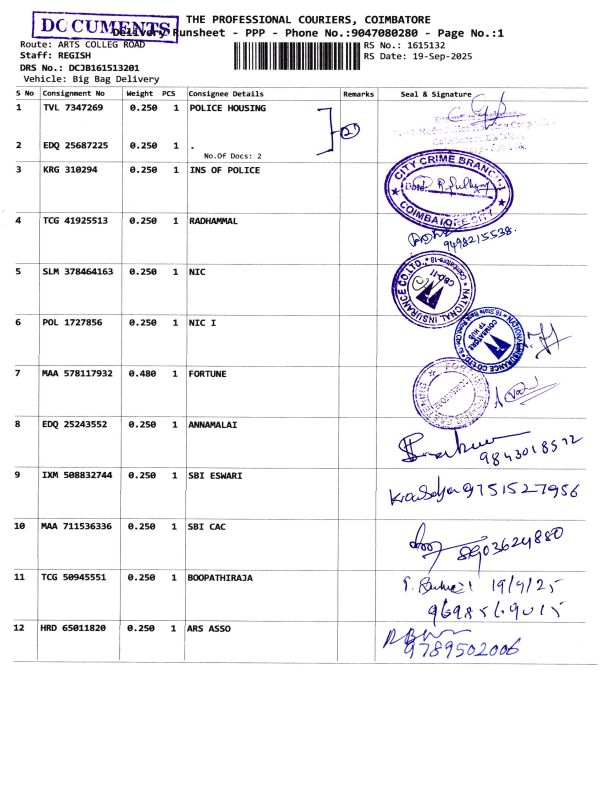 DOCUMENTS
THE PROFESSIONAL COURIERS, COIMBATORE
Delivery Runsheet - PPP - Phone No.:9047080280 - Page No.:1
Route: ARTS COLLEG ROAD
RS No.: 1615132
Staff: REGISH
RS Date: 19-Sep-2025
DRS No.: DCJB161513201
Vehicle: Big Bag Delivery
S No Consignment No Weight PCS Consignee Details Remarks Seal & Signature
1 TVL 7347269 0.250 1 POLICE HOUSING
2 EDQ 25687225 0.250 1 .
No.Of Docs: 2
3 KRG 310294 0.250 1 INS OF POLICE
CITY CRIME BRANCH
COIMBATORE CITY
4 TCG 41925513 0.250 1 RADHAMMAL
9498215538.
5 SLM 378464163 0.250 1 NIC
NATIONAL INSURANCE CO.LTD.
Coimbatore-18
CBO-11
6 POL 1727856 0.250 1 NIC I
COIMBATORE
7 MAA 578117932 0.480 1 FORTUNE
8 EDQ 25243552 0.250 1 ANNAMALAI
9843018572
9 IXM 508832744 0.250 1 SBI ESWARI
9751527956
10 MAA 711536336 0.250 1 SBI CAC
8903624880
11 TCG 50945551 0.250 1 BOOPATHIRAJA
19/9/25
12 HRD 65011820 0.250 1 ARS ASSO
9789502006